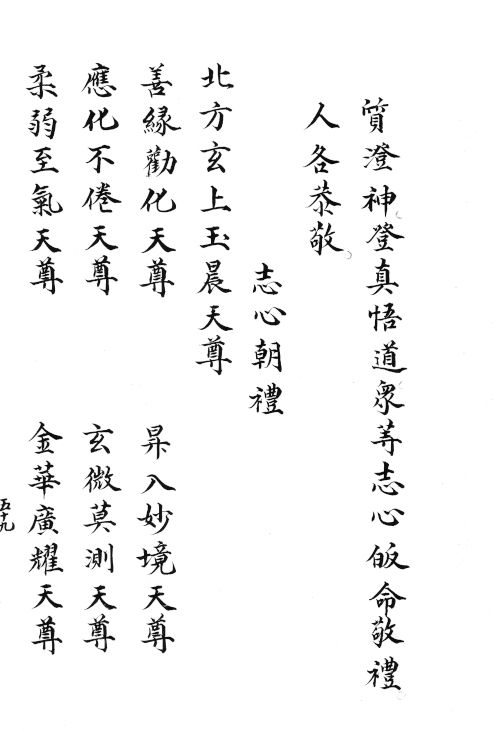 質澄神登真悟道衆等志心皈命敬禮
人各恭敬
志心朝禮
北方玄上玉晨天尊
善緣勸化天尊
昇入妙境天尊
應化不倦天尊
玄微莫測天尊
柔弱至氣天尊
金華廣耀天尊
五十九